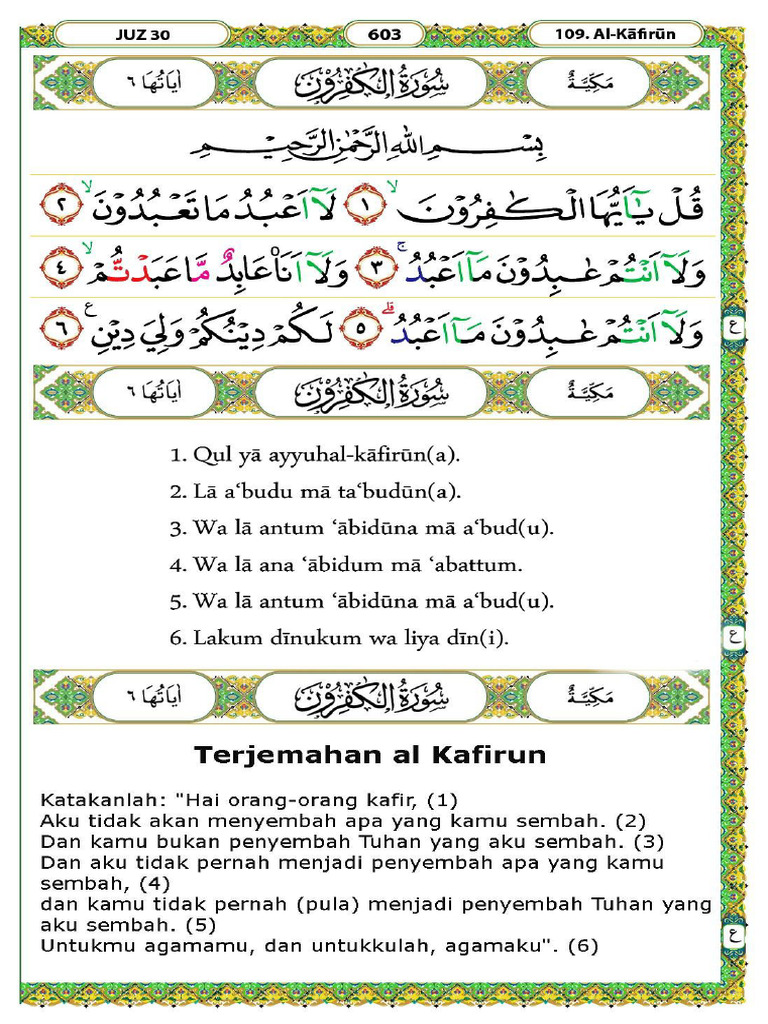 JUZ 30 603 109. Al-Kāfirūn
مَكِّيَّةٌ سُوْرَةُ الْكٰفِرُوْنَ اٰيَاتُهَا ٦
بِسْمِ اللّٰهِ الرَّحْمٰنِ الرَّحِيْمِ
قُلْ يٰٓاَيُّهَا الْكٰفِرُوْنَۙ ١ لَآ اَعْبُدُ مَا تَعْبُدُوْنَۙ ٢
وَلَآ اَنْتُمْ عٰبِدُوْنَ مَآ اَعْبُدُۚ ٣ وَلَآ اَنَا۠ عَابِدٌ مَّا عَبَدْتُّمْۙ ٤
وَلَآ اَنْتُمْ عٰبِدُوْنَ مَآ اَعْبُدُۗ ٥ لَكُمْ دِيْنُكُمْ وَلِيَ دِيْنِ ࣖ ٦
ع
مَكِّيَّةٌ سُوْرَةُ الْكٰفِرُوْنَ اٰيَاتُهَا ٦
1. Qul yā ayyuhal-kāfirūn(a).
2. Lā a‘budu mā ta‘budūn(a).
3. Wa lā antum ‘ābidūna mā a‘bud(u).
4. Wa lā ana ‘ābidum mā ‘abattum.
5. Wa lā antum ‘ābidūna mā a‘bud(u).
6. Lakum dīnukum wa liya dīn(i).
ع
مَكِّيَّةٌ سُوْرَةُ الْكٰفِرُوْنَ اٰيَاتُهَا ٦
Terjemahan al Kafirun
Katakanlah: "Hai orang-orang kafir, (1)
Aku tidak akan menyembah apa yang kamu sembah. (2)
Dan kamu bukan penyembah Tuhan yang aku sembah. (3)
Dan aku tidak pernah menjadi penyembah apa yang kamu
sembah, (4)
dan kamu tidak pernah (pula) menjadi penyembah Tuhan yang
aku sembah. (5)
ع
Untukmu agamamu, dan untukkulah, agamaku". (6)